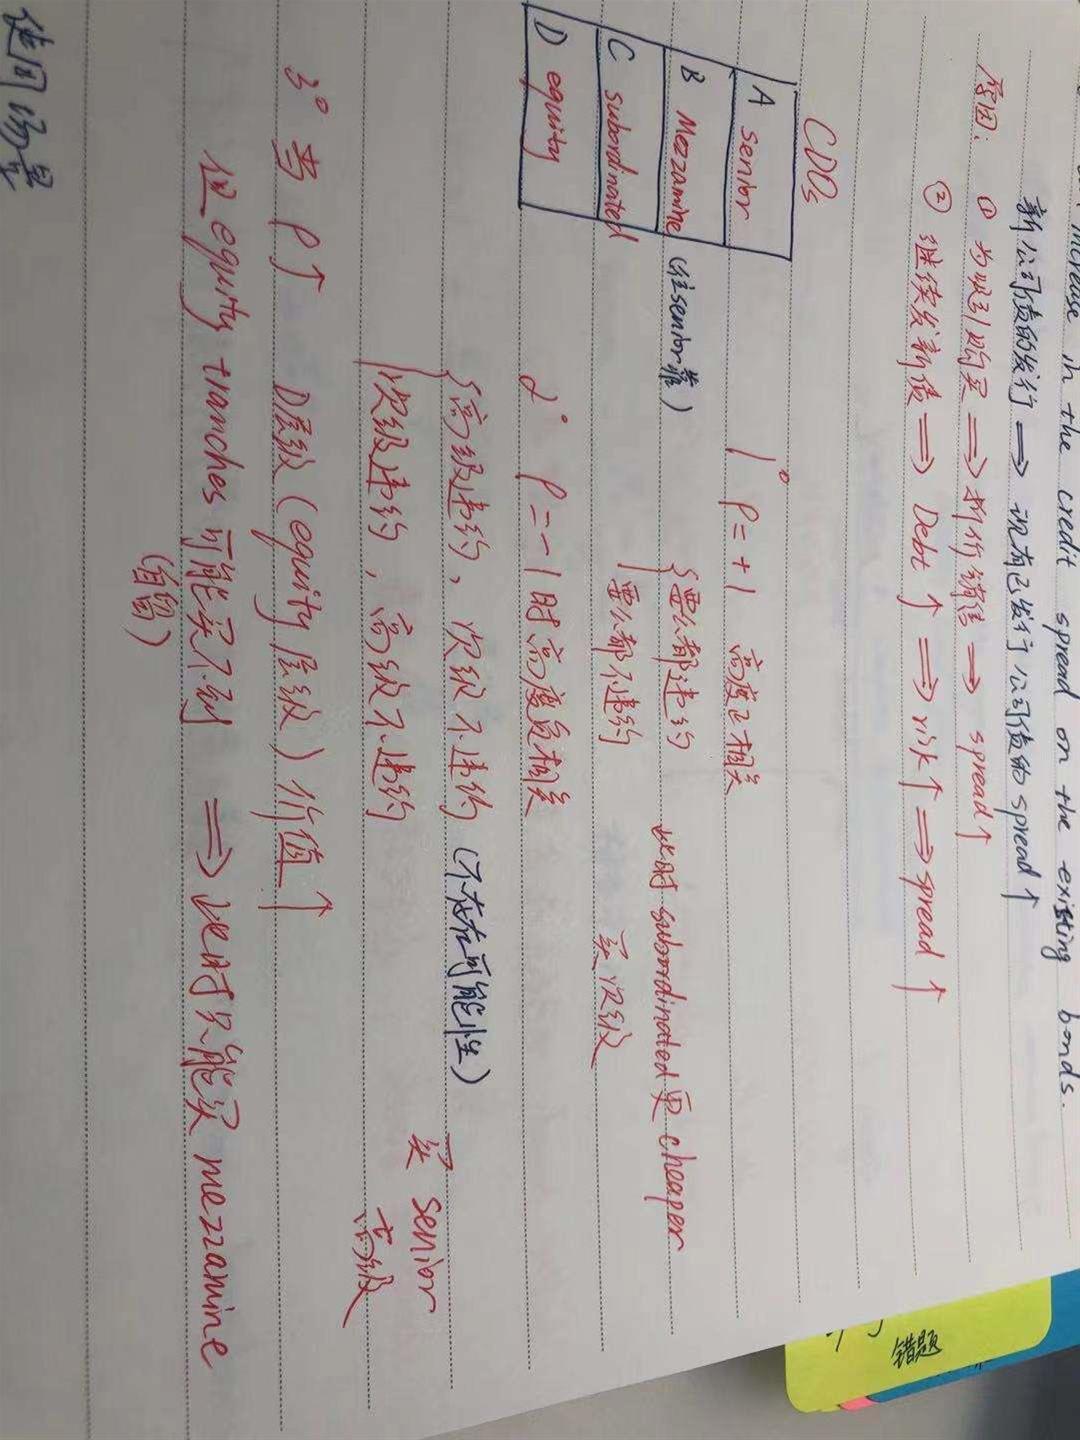 increase in the credit spread on the existing bonds.
新公司债的发行 ⟹ 现有已发行公司债的spread↑
原因: ① 为吸引购买 ⟹ 折价销售 → spread↑
② 继续发新债 ⟹ Debt↑ ⟹ risk↑ ⟹ spread↑
CDOs
A senior
B Mezzanine (往senior靠)
C subordinated
D equity
1° ρ=+1 高度正相关
{要么都违约
要么都不违约
此时 subordinated更cheaper
买次级
2° ρ=-1时高度负相关
{高级违约、次级不违约 (不存在可能性)
次级违约,高级不违约
买 senior
高级
3° 当 ρ↑ D层级(equity层级)价值↑
但equity tranches可能买不到 ⟹ 此时只能买mezzanine
(自留)
使用场景
错题